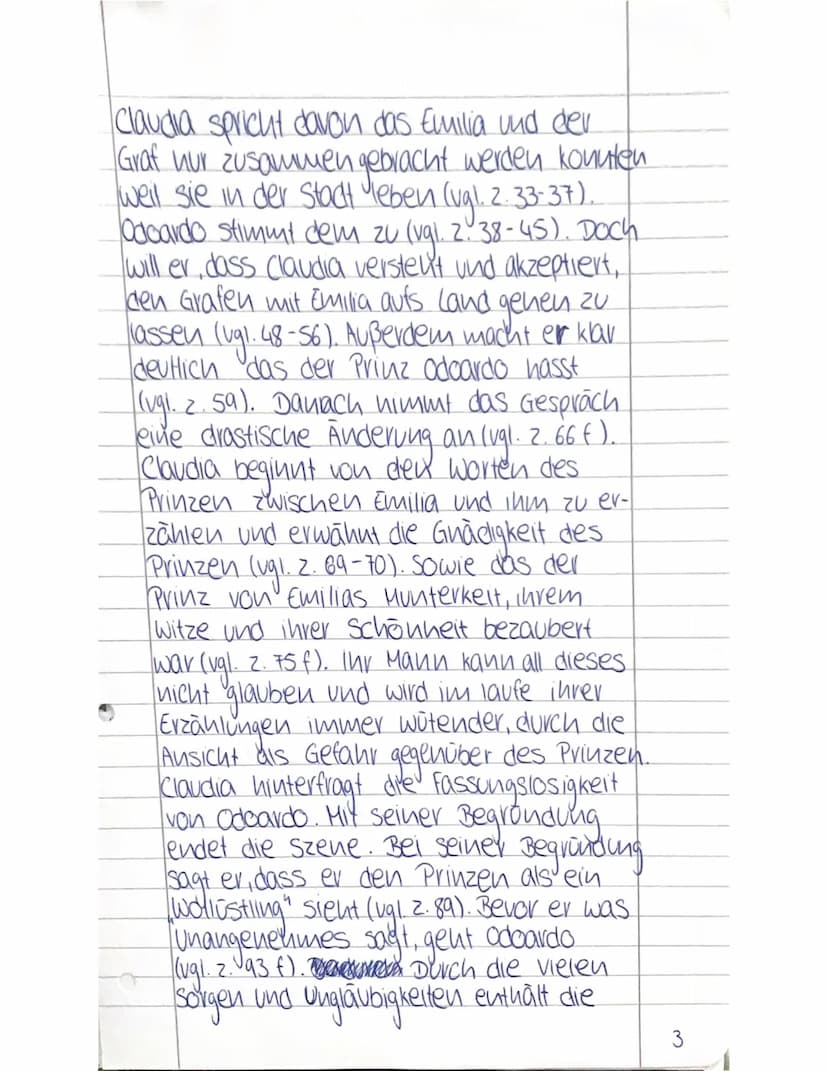 Claudia spricht davon das Emilia und der
Graf nur zusammengebracht werden konnten
weil sie in der Stadt leben (vgl. Z. 33-37).
Odoardo stimmt dem zu (vgl. Z. 38-45). Doch
will er, dass Claudia versteht und akzeptiert,
den Grafen mit Emilia aufs Land gehen zu
lassen (vgl. 48-56). Außerdem macht er klar
deutlich das der Prinz Odoardo hasst
(vgl. Z. 59). Danach nimmt das Gespräch
eine drastische Änderung an (vgl. Z. 66 f).
Claudia beginnt von den Worten des
Prinzen zwischen Emilia und ihm zu er-
zählen und erwähnt die Gnädigkeit des
Prinzen (vgl. Z. 69-70). Sowie das der
Prinz von Emilias Munterkeit, ihrem
Witze und ihrer Schönheit bezaubert
war (vgl. Z. 75 f). Ihr Mann kann all dieses
nicht glauben und wird im laufe ihrer
Erzählungen immer wütender, durch die
Ansicht als Gefahr gegenüber des Prinzen.
Claudia hinterfragt die Fassungslosigkeit
von Odoardo. Mit seiner Begründung
endet die Szene. Bei seiner Begründung
sagt er, dass er den Prinzen als ein
"Wollüstling" sieht (vgl. Z. 89). Bevor er was
Unangenehmes sagt, geht Odoardo
(vgl. Z. 93 f). Durch die vielen
Sorgen und Ungläubigkeiten enthält die
3